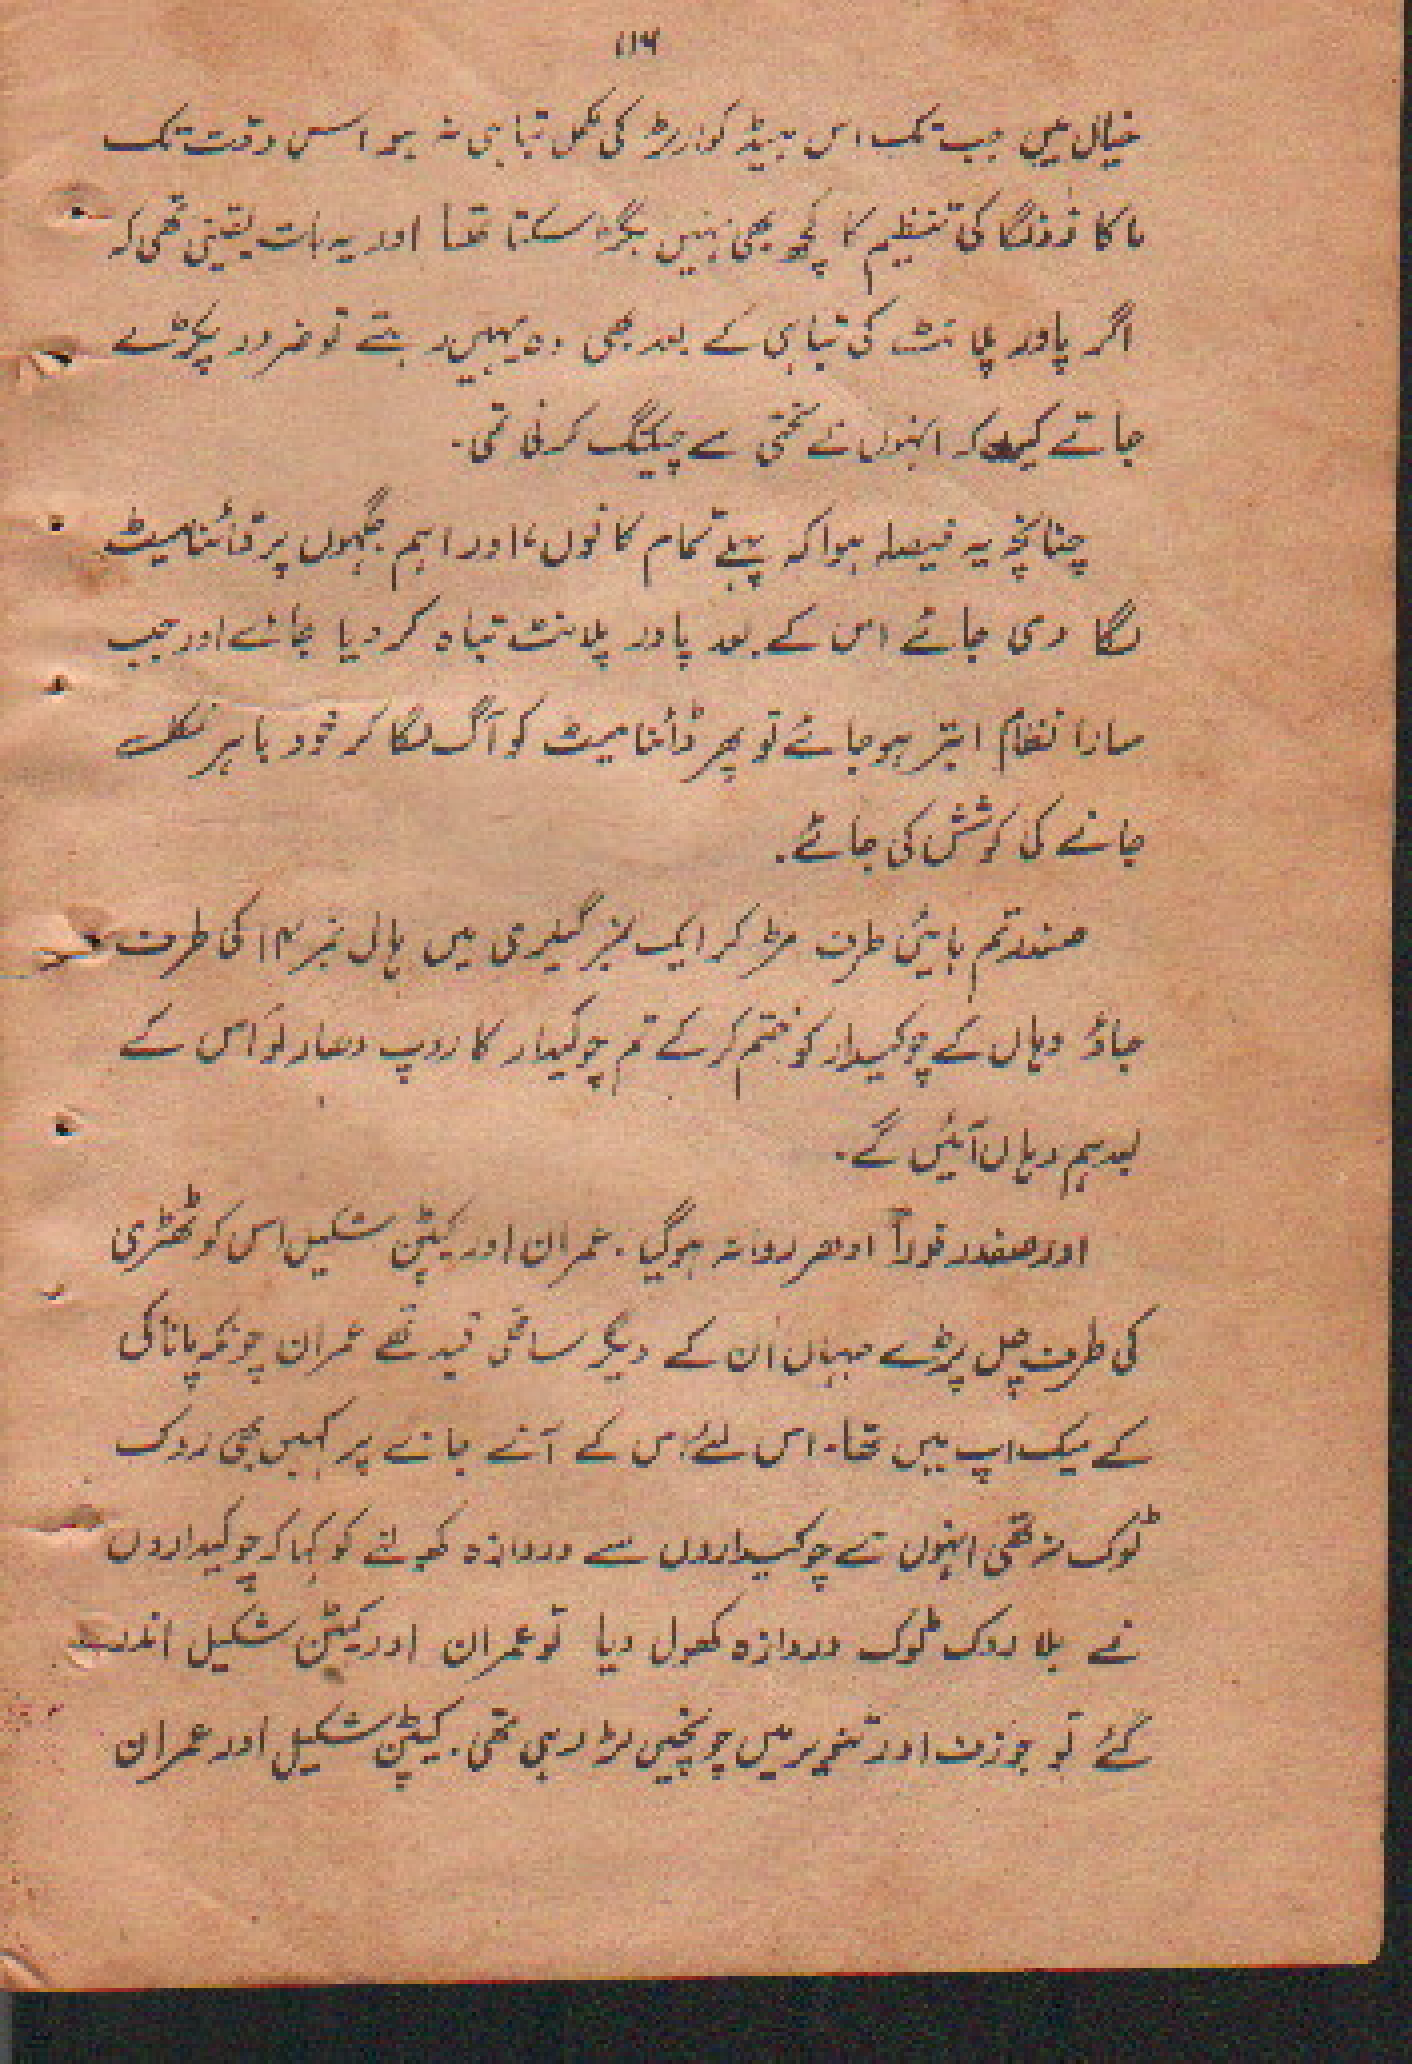 ۱۱۶
خیال میں جب تک اس ہیڈ کوارٹر کی مکمل تباہی نہ ہو اس وقت تک
ماکا زونگا کی تنظیم کا کچھ بھی نہیں بگڑ سکتا تھا اور یہ بات یقینی تھی کہ
اگر پاور پلانٹ کی تباہی کے بعد بھی وہ یہیں رہتے تو ضرور پکڑے
جاتے کیوں کہ انہوں نے سختی سے چیکنگ کرنی تھی۔
چنانچہ یہ فیصلہ ہوا کہ پہلے تمام کانوں، اور اہم جگہوں پر ڈائنامیٹ
لگا دی جائے اس کے بعد پاور پلانٹ تباہ کر دیا جائے اور جب
سارا نظام ابتر ہو جائے تو پھر ڈائنامیٹ کو آگ لگا کر خود باہر نکلے
جانے کی کوشش کی جائے۔
صفدر تم بائیں طرف مڑ کر ایک گیلری میں ہال نمبر ۱۴ کی طرف
جاؤ وہاں کے چوکیدار کو ختم کر کے تم چوکیدار کا روپ دھار لو اس کے
بعد ہم وہاں آئیں گے۔
اور صفدر فوراً ادھر روانہ ہو گیا۔ عمران اور کیپٹن شکیل اس کوٹھڑی
کی طرف چل پڑے جہاں ان کے دیگر ساتھی قید تھے عمران چونکہ پاناکی
کے میک اپ میں تھا۔ اس لئے اس کے آنے جانے پر کہیں بھی روک
ٹوک نہ تھی انہوں نے چوکیداروں سے دروازہ کھولنے کو کہا کہ چوکیداروں
نے بلا روک ٹوک دروازہ کھول دیا تو عمران اور کیپٹن شکیل اندر
گئے تو جوزف اور تنویر میں چونچیں لڑ رہی تھی۔ کیپٹن شکیل اور عمران